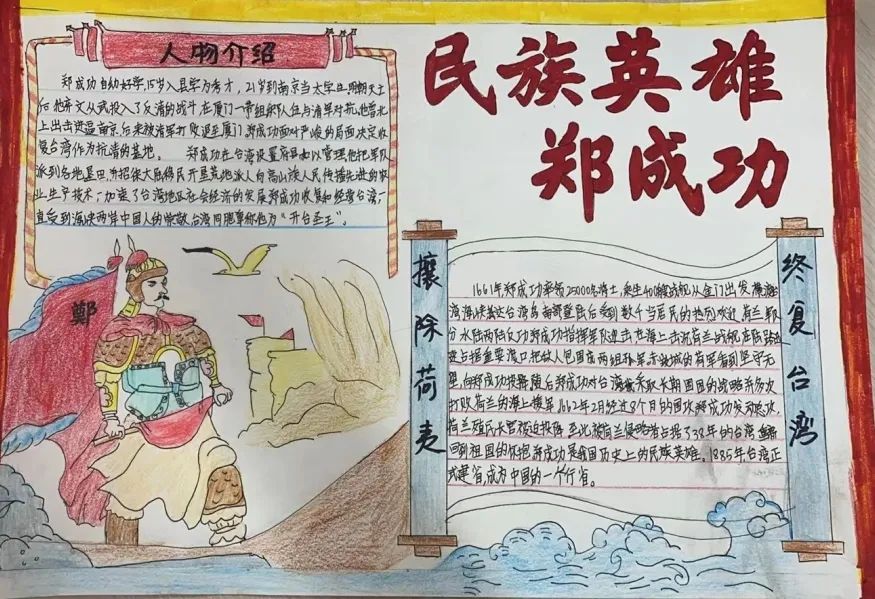 民族英雄
郑成功
人物介绍
郑成功自幼好学,15岁入县学为秀才,21岁到南京当太学生明朝灭亡
后他弃文从武投入了反清的战斗在厦门一带组织队伍与清军对抗他曾水
上出击进逼南京后来被清军打败退至厦门郑成功面对严峻的局面决定收
复台湾作为抗清的基地。 郑成功在台湾设置府县加以管理他把军队
派到各地屯田并招徕大陆移民开垦荒地派人向高山族人民传播先进的农
业生产技术,加强了台湾地区社会经济的发展郑成功收复和经营台湾,一
直受到海峡两岸中国人的崇敬台湾同胞尊称他为“开台圣王”。
鄭
攘除荷夷
1661年,郑成功率领25000名将士,乘坐400艘战舰从金门出发
海峡 台湾 南部登陆后受到数千当居民的热烈欢迎,荷兰军队
分水陆两陆反功郑成功指挥军队迎击在海上击沉荷兰战舰在陆
占据重要渡口把敌人包围成两组孤军 赤嵌城的荷军看到坚守无
望,向郑成功投降随后郑成功对台湾 采取长期围困的战略并多次
打败荷兰的海上援军1662年2月经过8个月的围攻郑成功发动
荷兰殖民长官被迫投降至此被荷兰侵略者占据了38年的台湾
回到祖国的怀抱郑成功是我国历史上的民族英雄。1885年,台湾正
式建省,成为中国的一个行省。
终复台湾